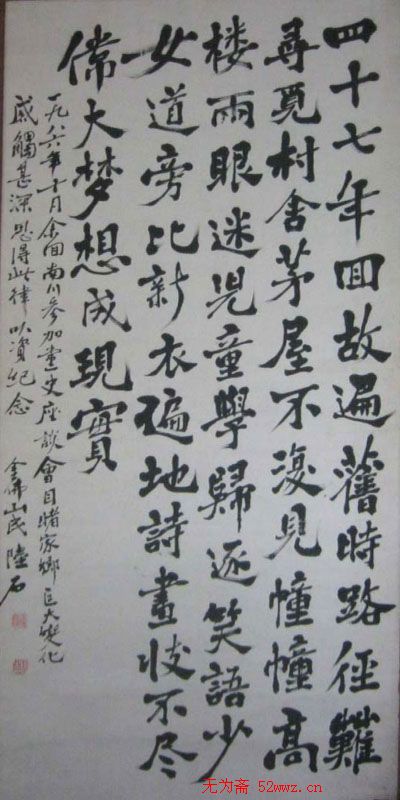 四十七年回故遍舊時路徑難
尋覓村舍茅屋不復見幢幢高
楼兩眼迷児童學歸逐笑語少
女道旁比新衣遍地詩畫收不尽
大梦想成現實
一九八六年十月余回南川参加党史座談會目睹家鄉巨大变化
感觸甚深得此律以資紀念 金佛山民陸石
无为斋 52wwz.cn